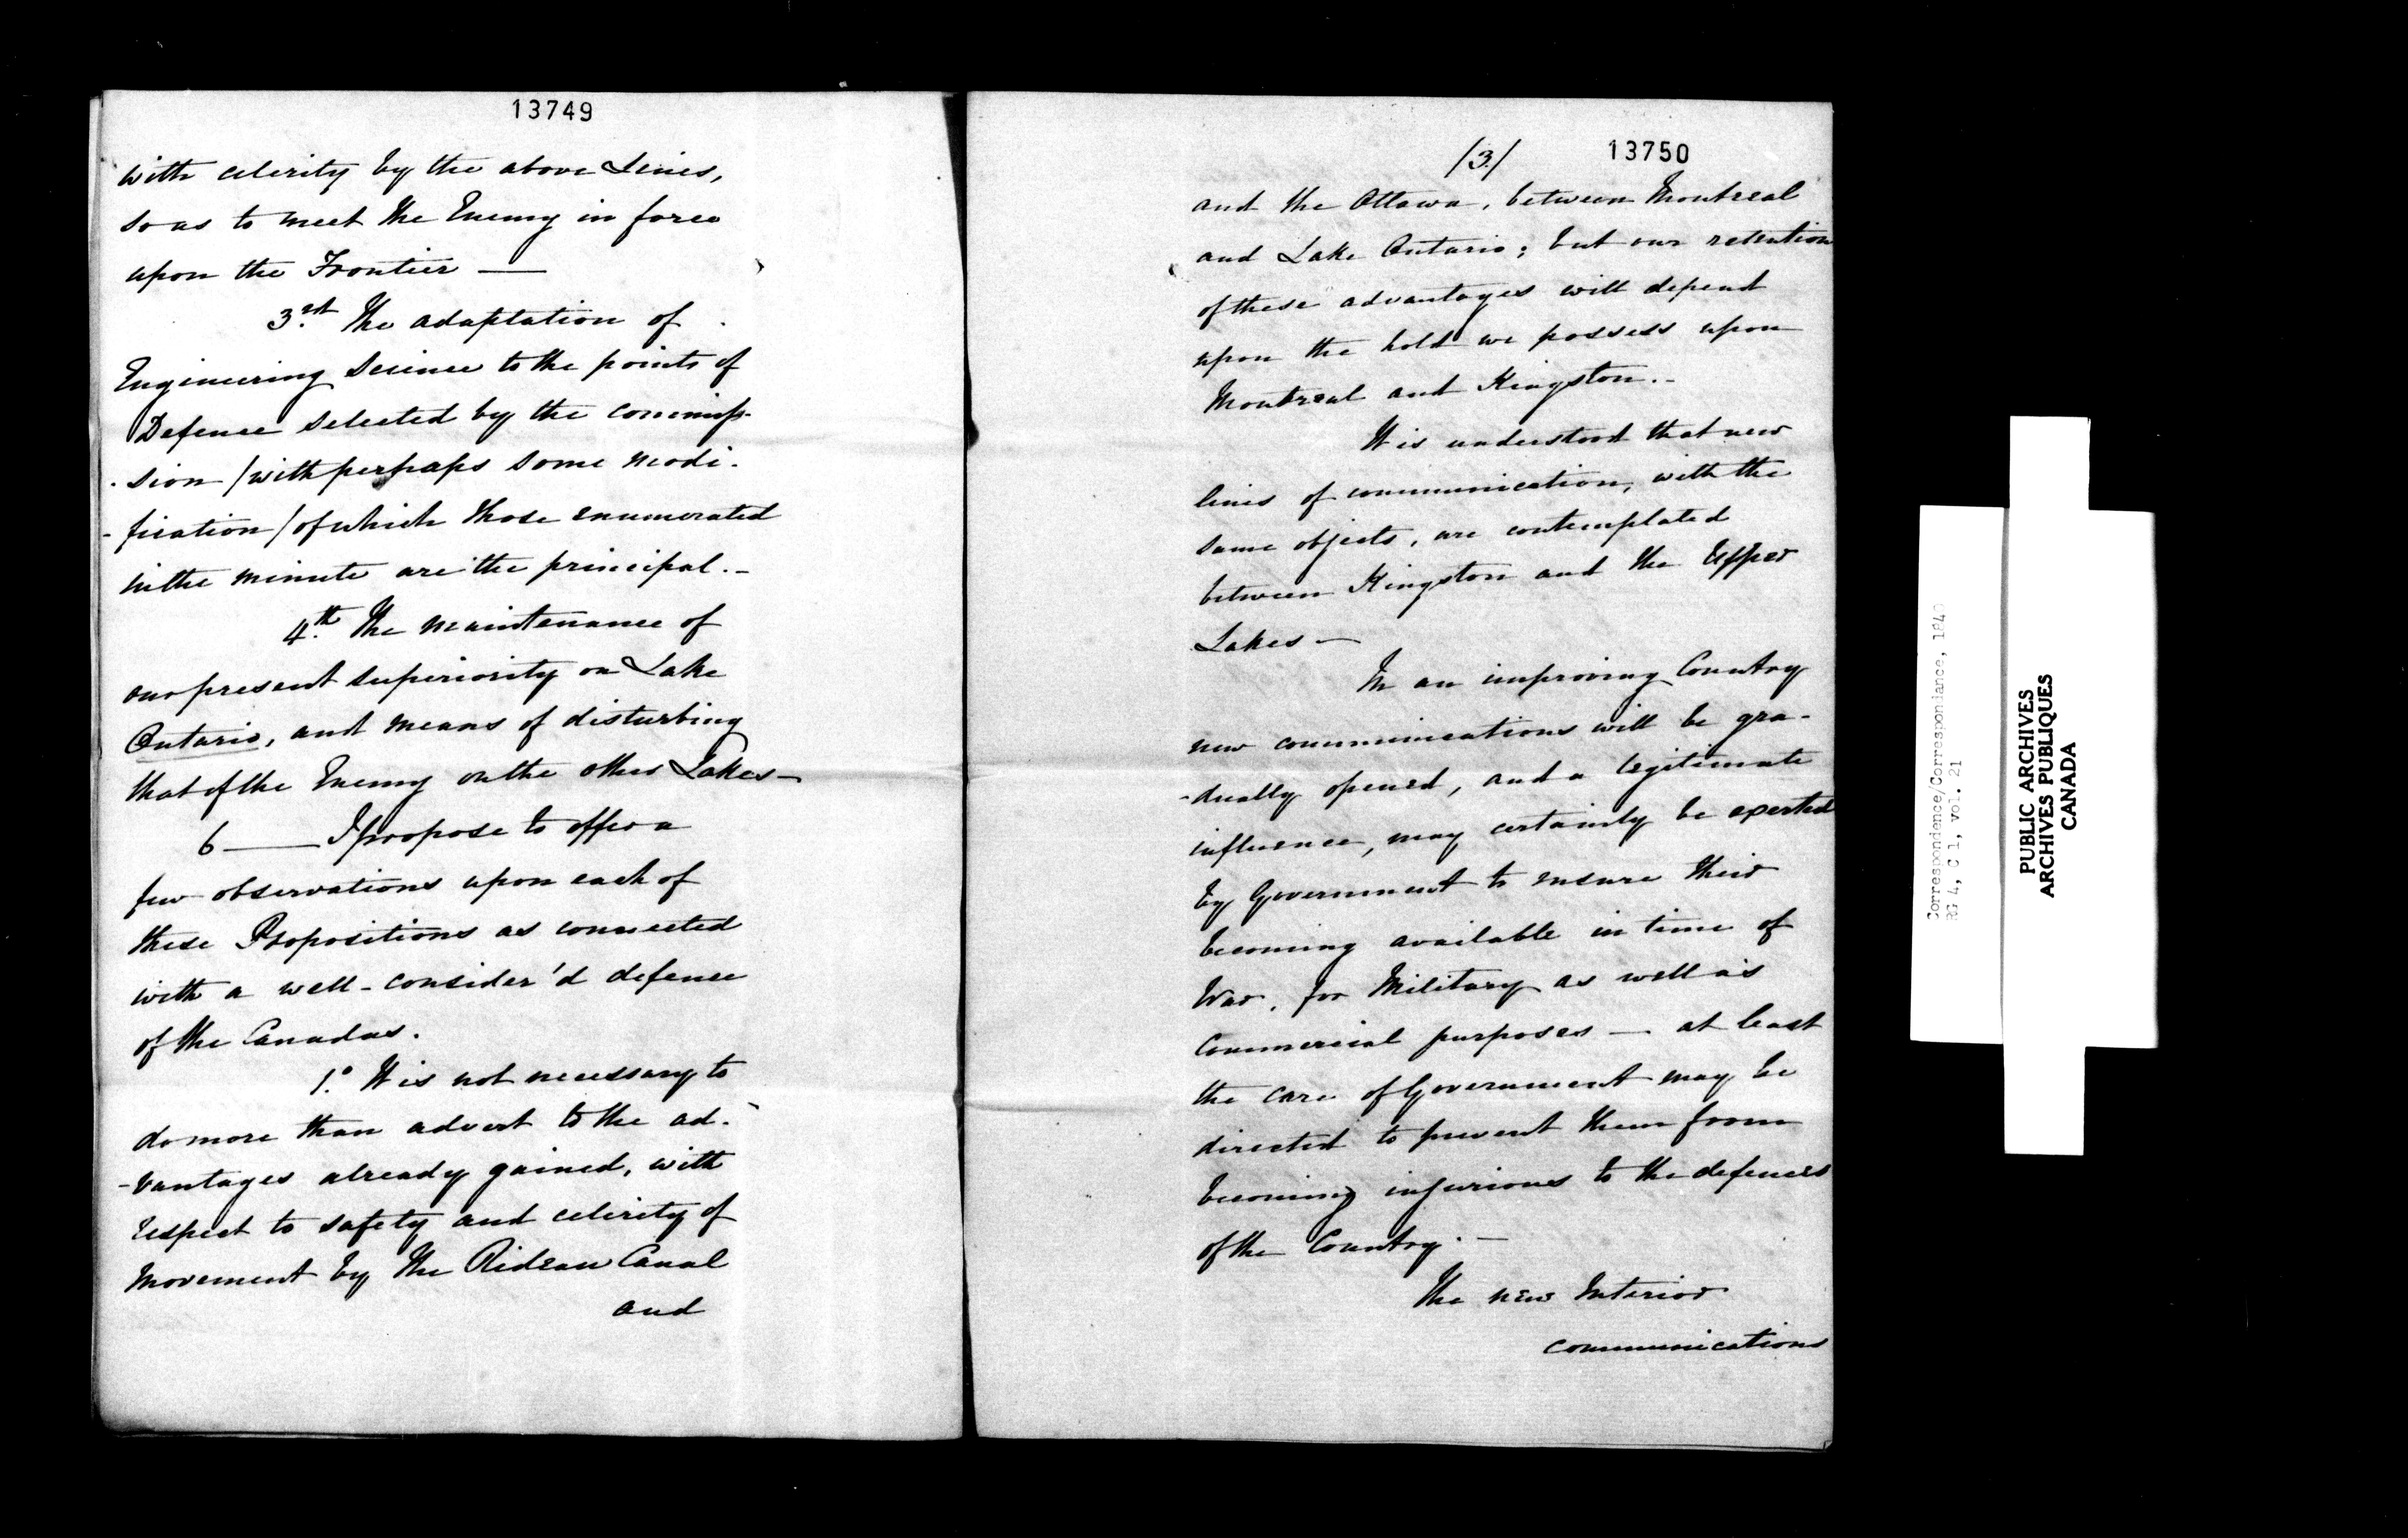 13749
with celerity by the above Lines,
so as to meet the Enemy in force
upon the Frontier —
3.rd The adaptation of
Engineering Science to the points of
Defence selected by the commis-
-sion /with perhaps some modi-
-fication/ of which those enumerated
in the minute are the principal.-
4.th The maintenance of
our present superiority on Lake
Ontario, and means of disturbing
that of the Enemy on the other Lakes-
6 — I propose to offer a
few observations upon each of
these Propositions as connected
with a well-consider'd defence
of the Canadas.
1.o It is not necessary to
do more than advert to the ad-
-vantages already gained, with
respect to safety and celerity of
movement by the Rideau Canal
and
/3/
13750
and the Ottawa, between Montreal
and Lake Ontario; but our retention
of these advantages will depend
upon the hold we possess upon
Montreal and Kingston.-
It is understood that new
lines of communication, with the
same objects, are contemplated
between Kingston and the Upper
Lakes -
In an improving Country
new communications will be gra-
-dually opened, and a legitimate
influence, may certainly be exerted
by Government to ensure their
becoming available in time of
War, for Military as well as
Commercial purposes — at least
the care of Government may be
directed to prevent them from
becoming injurious to the defences
of the Country. -
The new Interior
communications
Correspondence/Correspondance, 1840
RG 4, C 1, vol. 21
PUBLIC ARCHIVES
ARCHIVES PUBLIQUES
CANADA